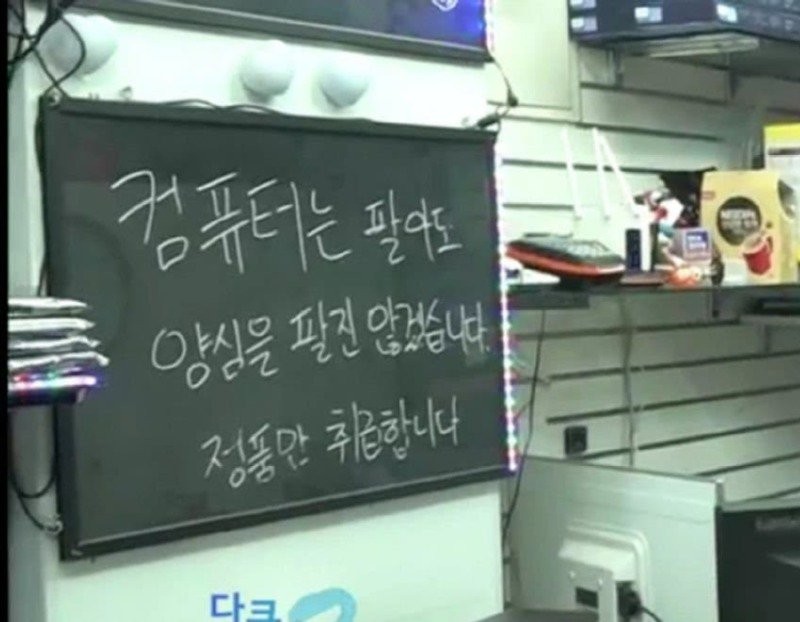 컴퓨터는 팔아도
양심을 팔진 않겠습니다.
정품만 취급합니다
NESCAFE
다크